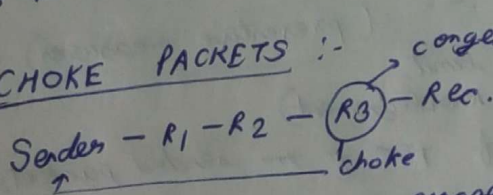 CHOKE PACKETS :- conge
Sender - R1 - R2 - R3 - Rec.
choke